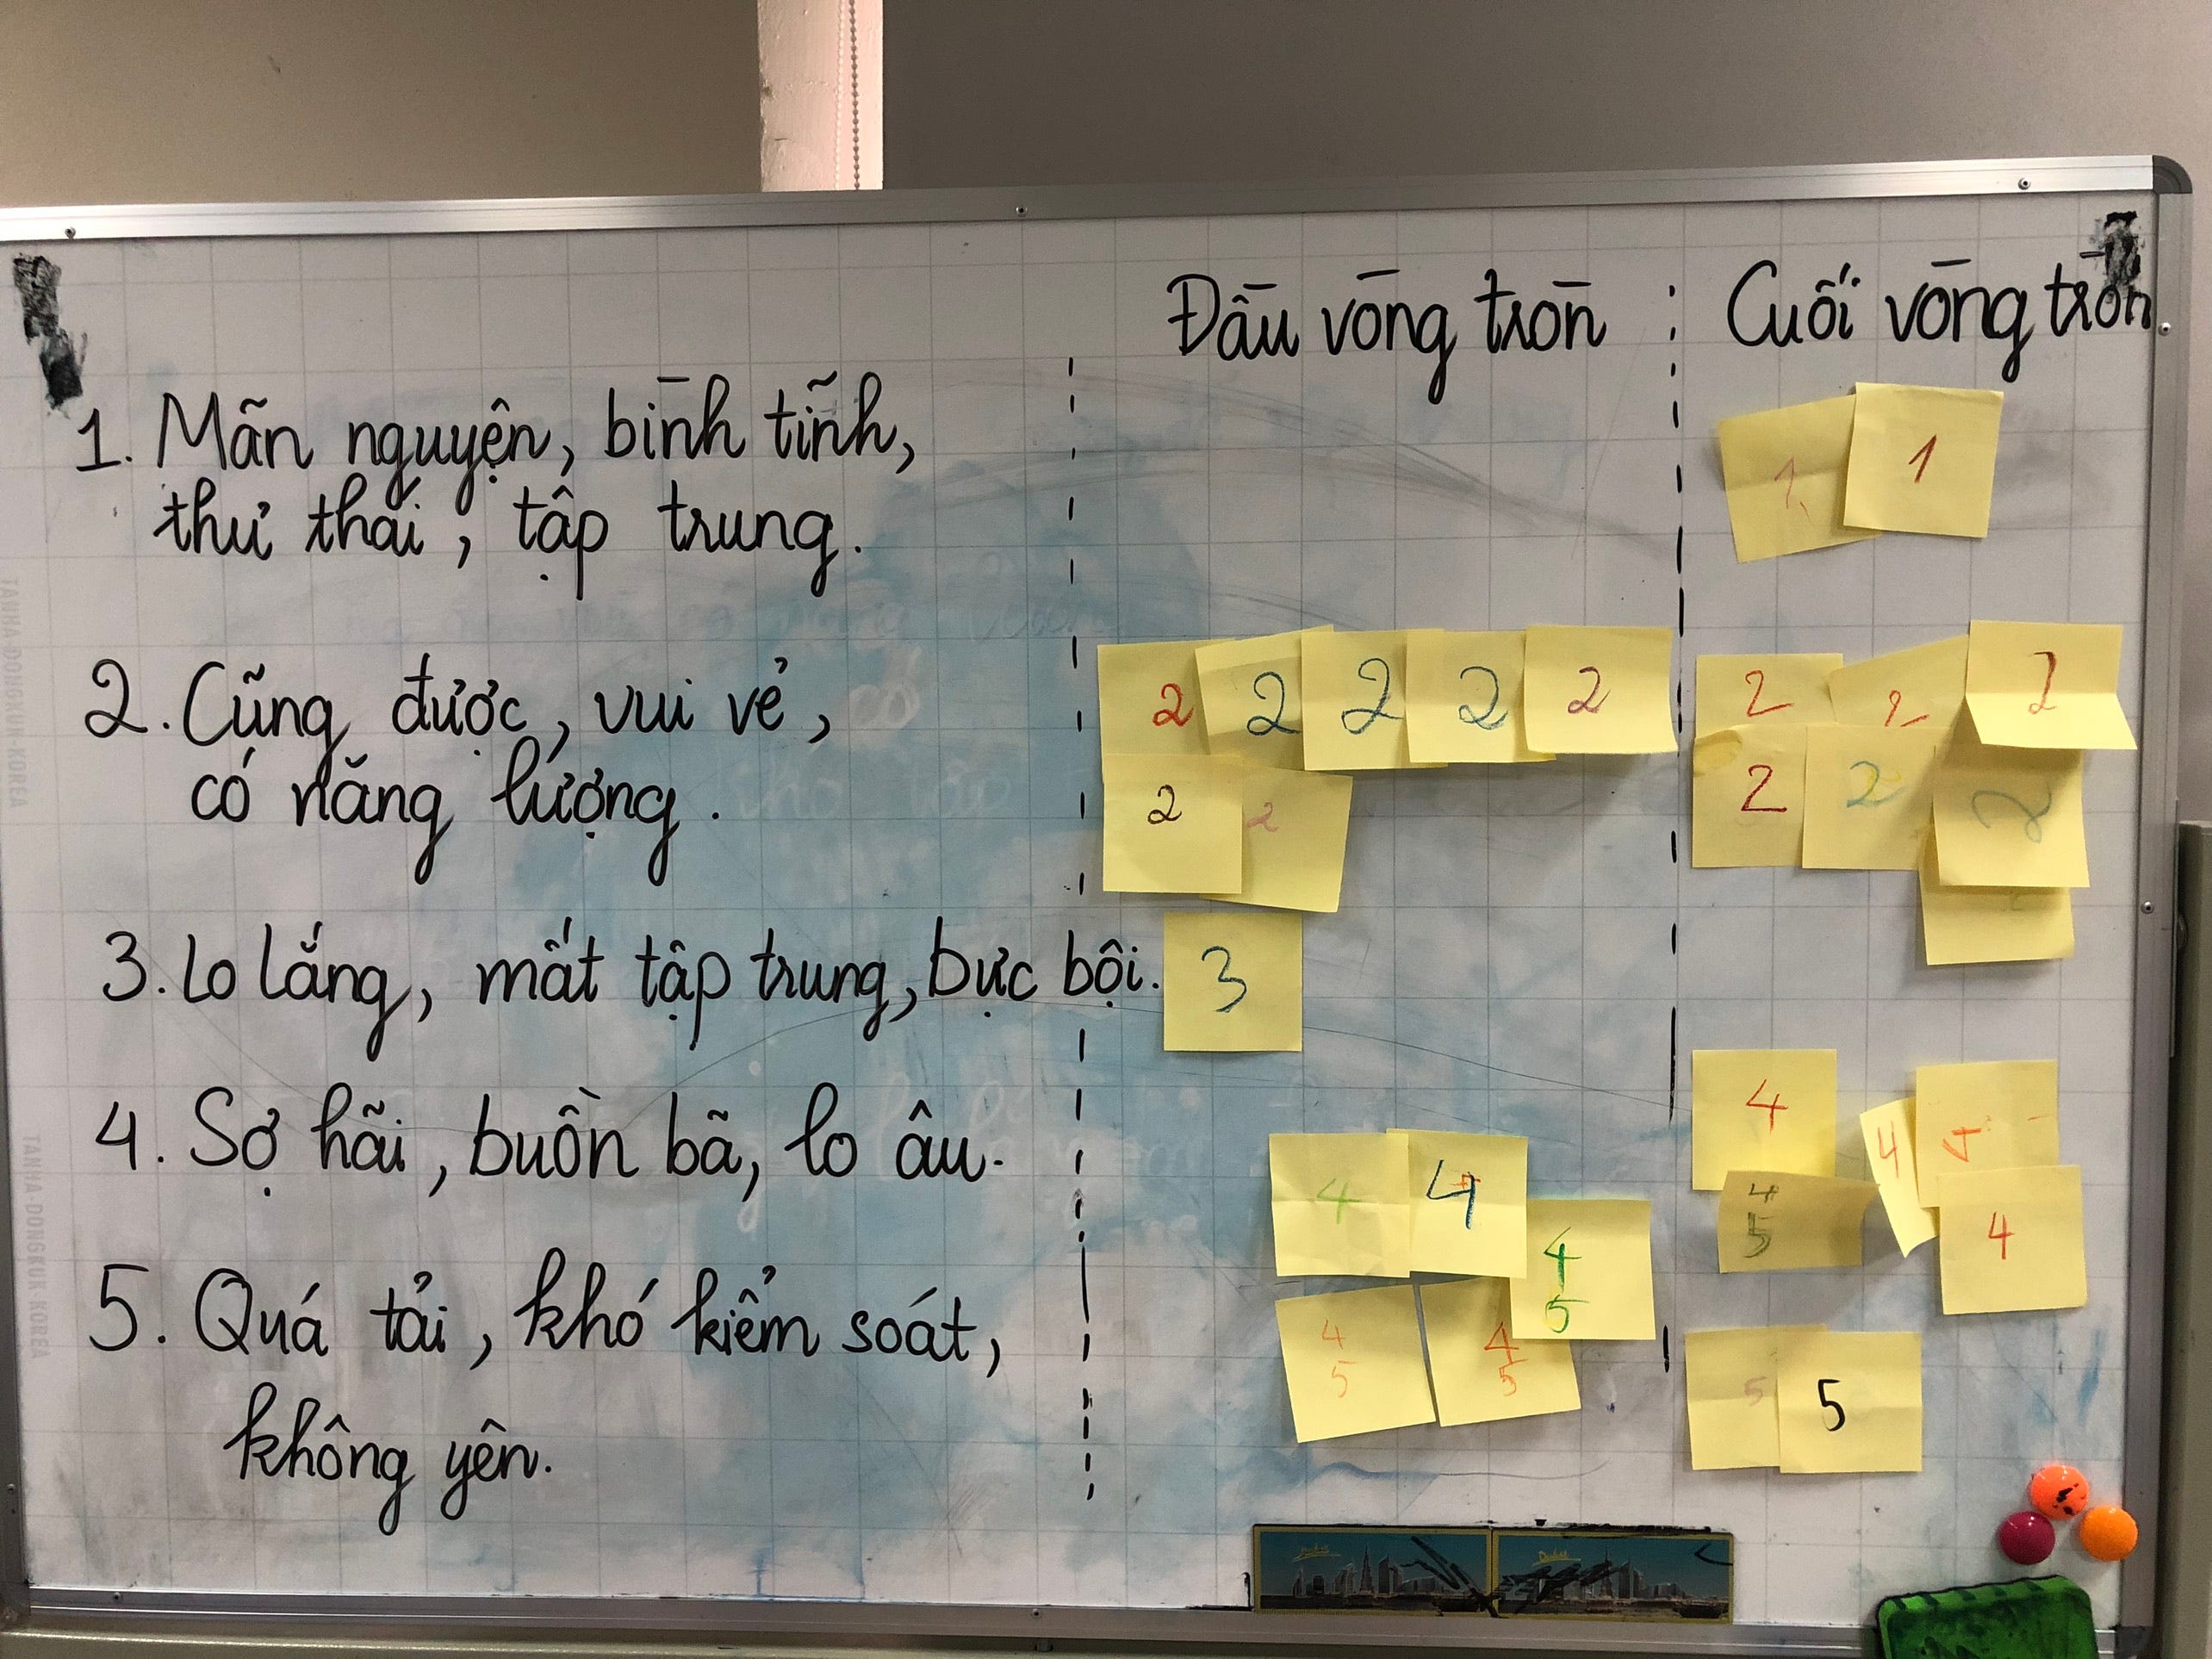 Đầu vòng tròn
Cuối vòng tròn
1. Mãn nguyện, bình tĩnh,
thư thái, tập trung.
1 1
2. Cũng được, vui vẻ,
có năng lượng.
2 2 2 2 2
2 2
2 2 2
2 2 2
3. Lo lắng, mất tập trung, bực bội.
3
4. Sợ hãi, buồn bã, lo âu.
4 4
4
5
4
5
4
5
4
4
4
5
4
5. Quá tải, khó kiểm soát,
không yên.
5 5
TANHA DONGKUK KOREA
TANHA DONGKUK KOREA